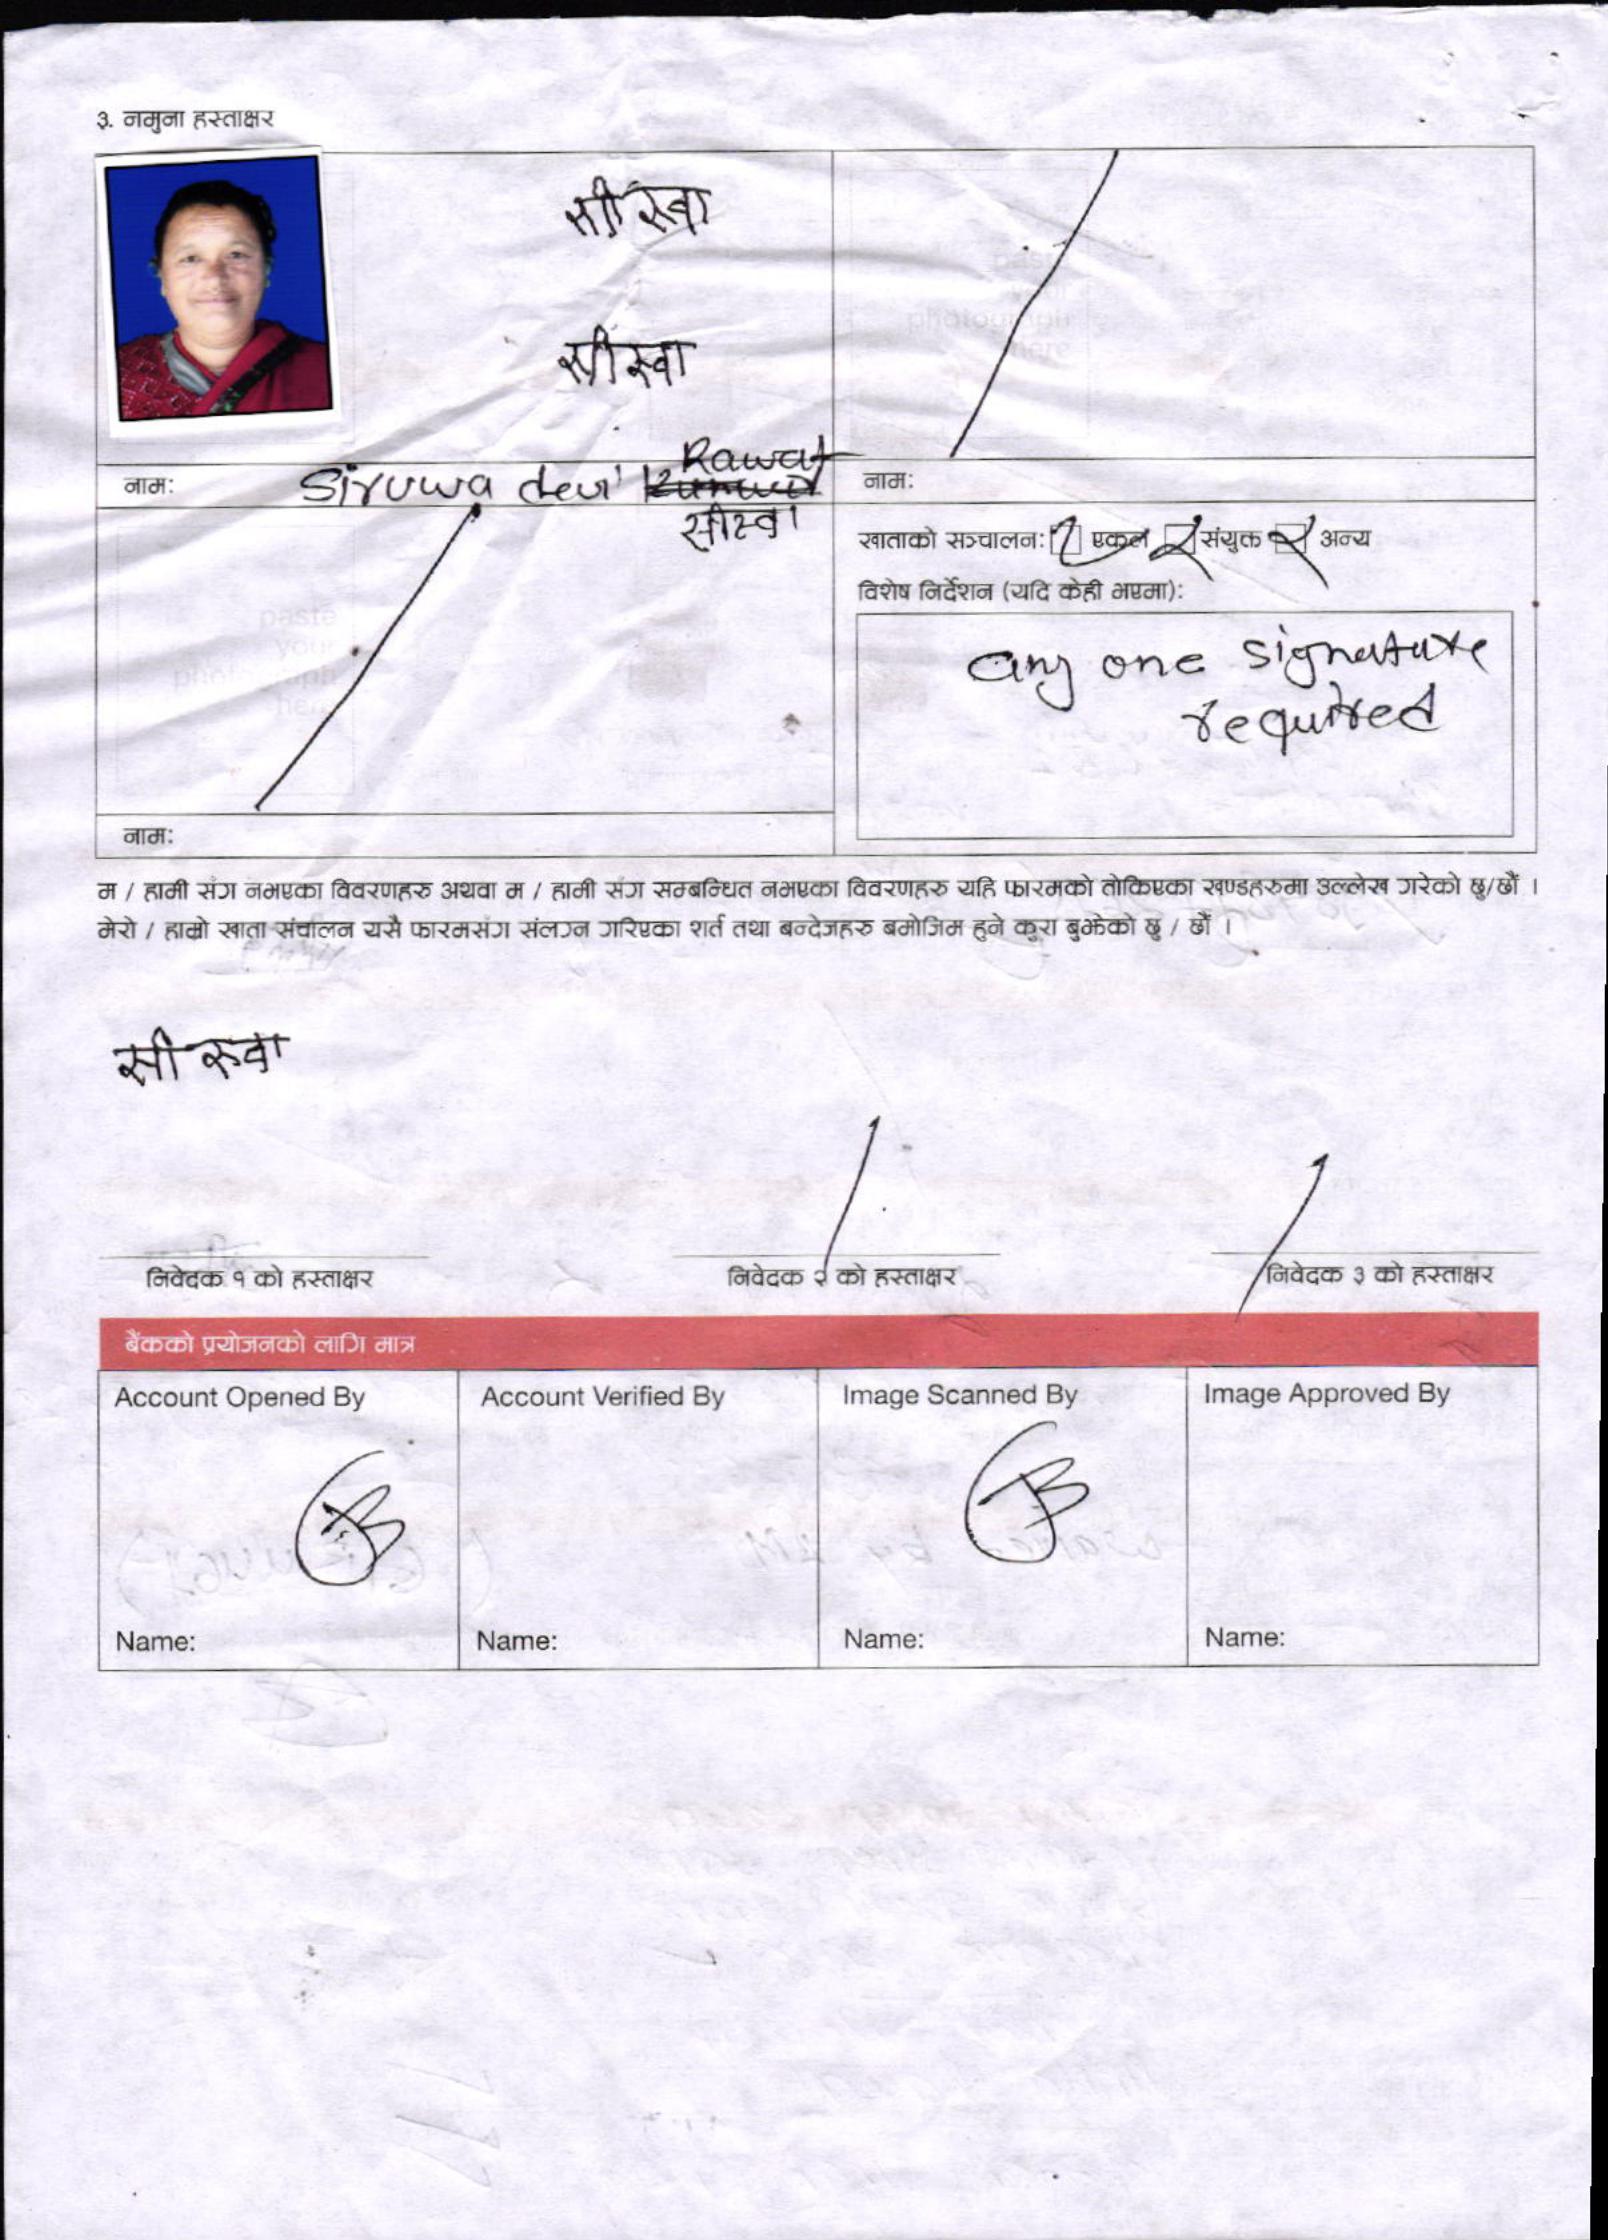 ३. नमुना हस्ताक्षर
सीरुवा
सीरुवा
नाम: Siruwa devi Rawat
सीरुवा
नाम:
खाताको सञ्चालन: एकल संयुक्त अन्य
विशेष निर्देशन (यदि केही भएमा):
any one signature
required
नाम:
म / हामी संग नभएका विवरणहरु अथवा म / हामी संग सम्बन्धित नभएका विवरणहरु यहि फारमको तोकिएका खण्डहरुमा उल्लेख गरेको छु/छौं ।
मेरो / हाम्रो खाता संचालन यसै फारमसंग संलग्न गरिएका शर्त तथा बन्देजहरु बमोजिम हुने कुरा बुझेको छु / छौं ।
सीरुवा
निवेदक १ को हस्ताक्षर
निवेदक २ को हस्ताक्षर
निवेदक ३ को हस्ताक्षर
बैंकको प्रयोजनको लागि मात्र
Account Opened By
Account Verified By
Image Scanned By
Image Approved By
Name:
Name:
Name:
Name: